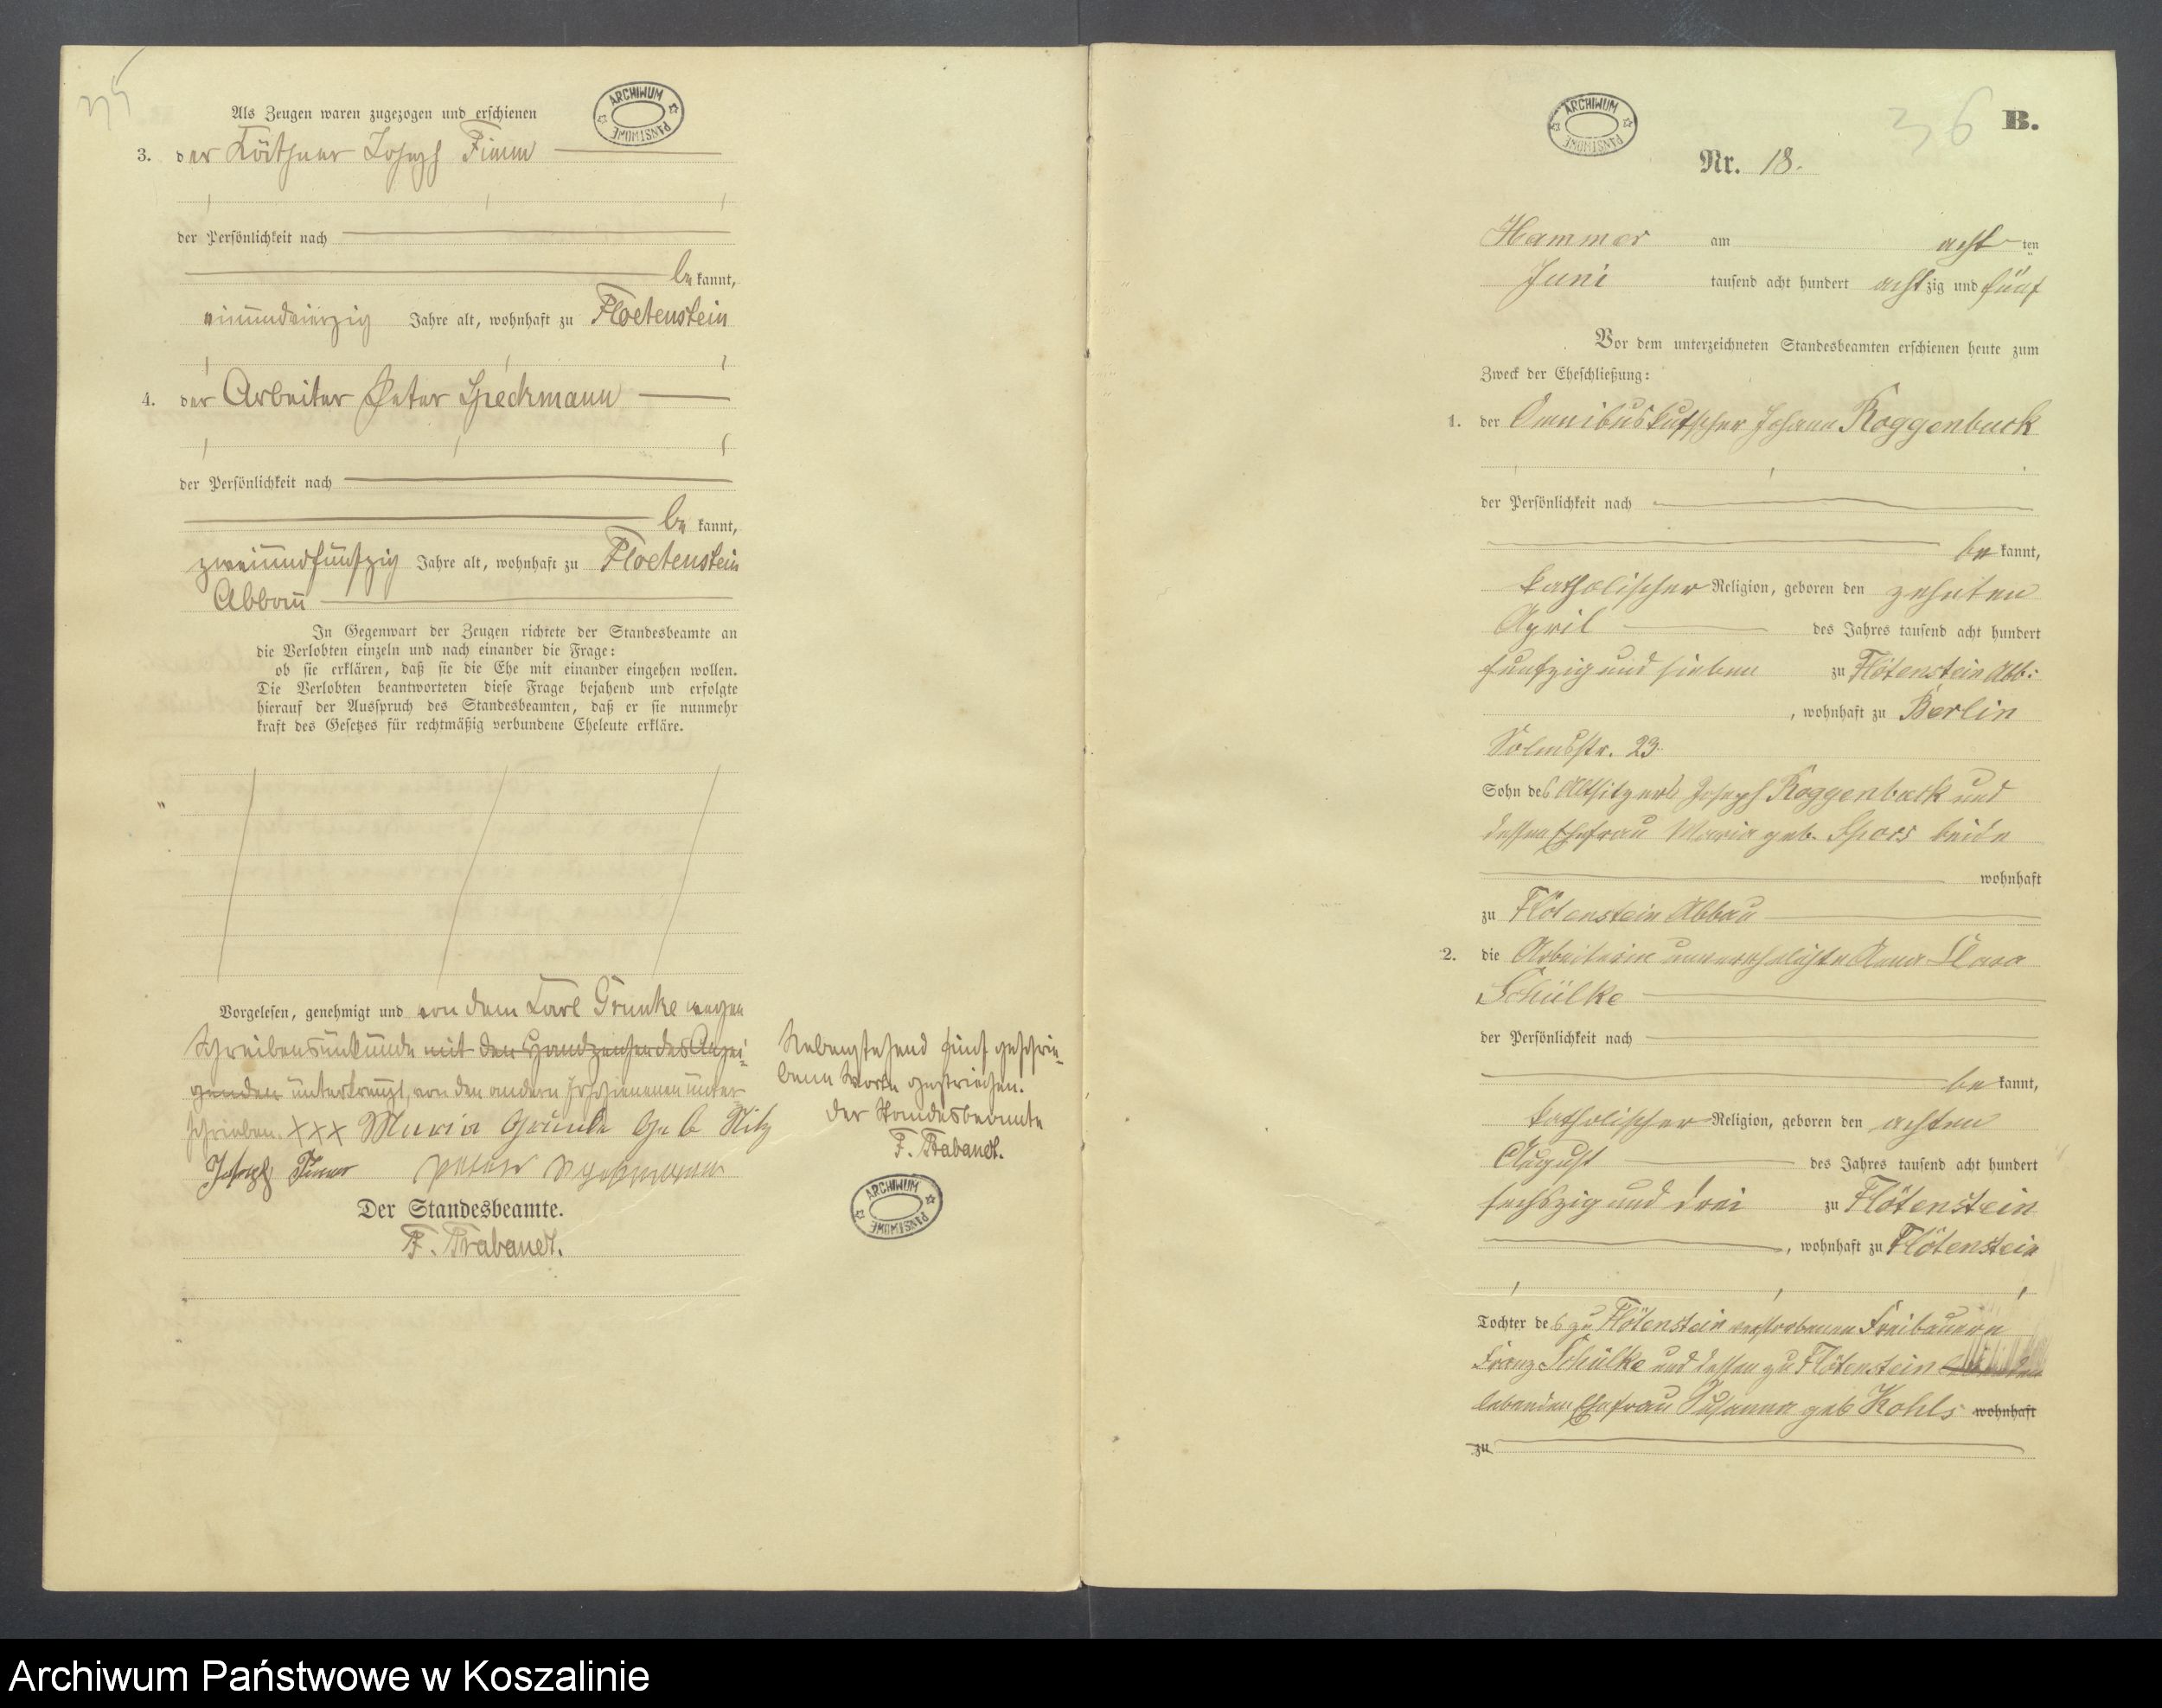 35
Als Zeugen waren zugezogen und erschienen
ARCHIWUM PAŃSTWOWE
3. der Käthner Joseph Timm
der Persönlichkeit nach
be kannt,
einundvierzig Jahre alt, wohnhaft zu Floetenstein
4. der Arbeiter Peter Speckmann
der Persönlichkeit nach
be kannt,
zweiundfünfzig Jahre alt, wohnhaft zu Floetenstein
Abbau
In Gegenwart der Zeugen richtete der Standesbeamte an
die Verlobten einzeln und nach einander die Frage:
ob sie erklären, daß sie die Ehe mit einander eingehen wollen.
Die Verlobten beantworteten diese Frage bejahend und erfolgte
hierauf der Ausspruch des Standesbeamten, daß er sie nunmehr
kraft des Gesetzes für rechtmäßig verbundene Eheleute erkläre.
Vorgelesen, genehmigt und von dem Carl Grunke wegen
Schreibensunkunde mit den Handzeichen des Anzei-
genden unterkreuzt, von den andern Erschienenen unter-
schrieben. XXX Maria Grunke geb Nitz
Joseph Timm Peter Speckmann
Der Standesbeamte.
F. Brabandt.
Nebenstehend fünf geschrie-
bene Worte gestrichen.
Der Standesbeamte
F. Brabandt.
ARCHIWUM PAŃSTWOWE
ARCHIWUM PAŃSTWOWE
36
B.
Nr. 18.
Hammer am acht ten
Juni tausend acht hundert achtzig und fünf
Vor dem unterzeichneten Standesbeamten erschienen heute zum
Zweck der Eheschließung:
1. der Omnibuskutscher Johann Roggenbuck
der Persönlichkeit nach
be kannt,
katholischer Religion, geboren den zehnten
April des Jahres tausend acht hundert
funfzig und sieben zu Flötenstein Abb:
, wohnhaft zu Berlin
Solmsstr. 23
Sohn des Altsitzers Joseph Roggenbuck und
dessen Ehefrau Maria geb. Spors beide
wohnhaft
zu Flötenstein Abbau
2. die Arbeiterin unverehelichte Anna Clara
Schülke
der Persönlichkeit nach
be kannt,
katholischer Religion, geboren den achten
August des Jahres tausend acht hundert
sechszig und drei zu Flötenstein
, wohnhaft zu Flötenstein
Tochter des zu Flötenstein verstorbenen Freibauern
Franz Schülke und dessen zu Flötenstein
lebenden Ehefrau Susanna geb Kohls wohnhaft
zu
Archiwum Państwowe w Koszalinie